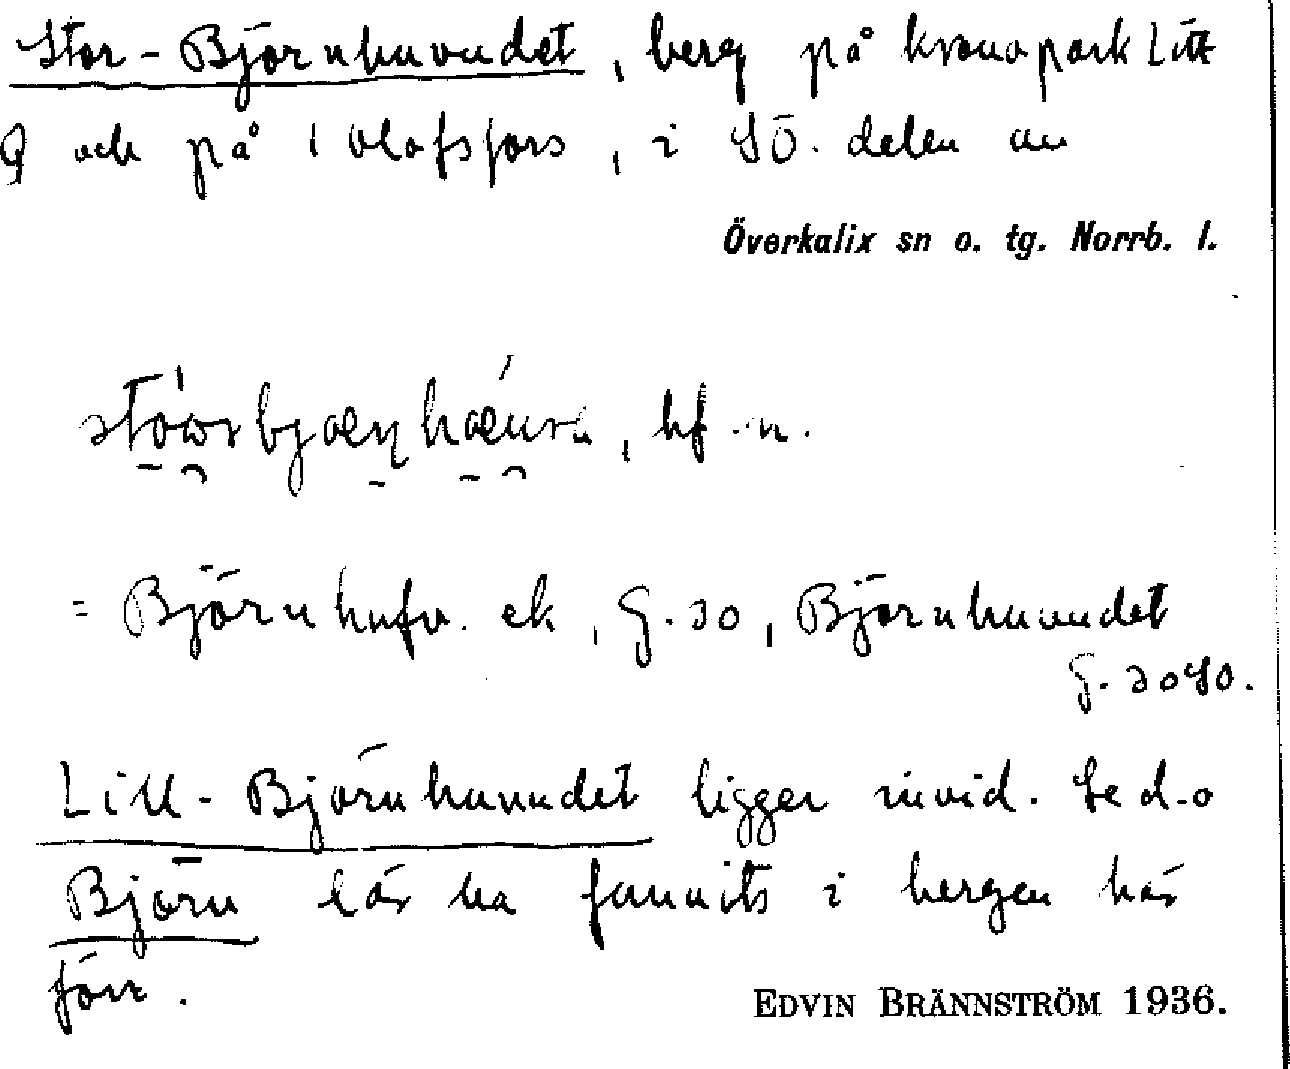 Stor-Björnhuvudet, berg på kronopark Litt
G och på 1 Olofsfors, i SÖ. delen av
Överkalix sn o. tg. Norrb. l.
hf.n.
= Björnhufv. ek, G. 30, Björnhuvudet
G. 3040.
Lill-Björnhuvudet ligger invid. Se d.o
Björn lär ha funnits i bergen här
förr.
EDVIN BRÄNNSTRÖM 1936.